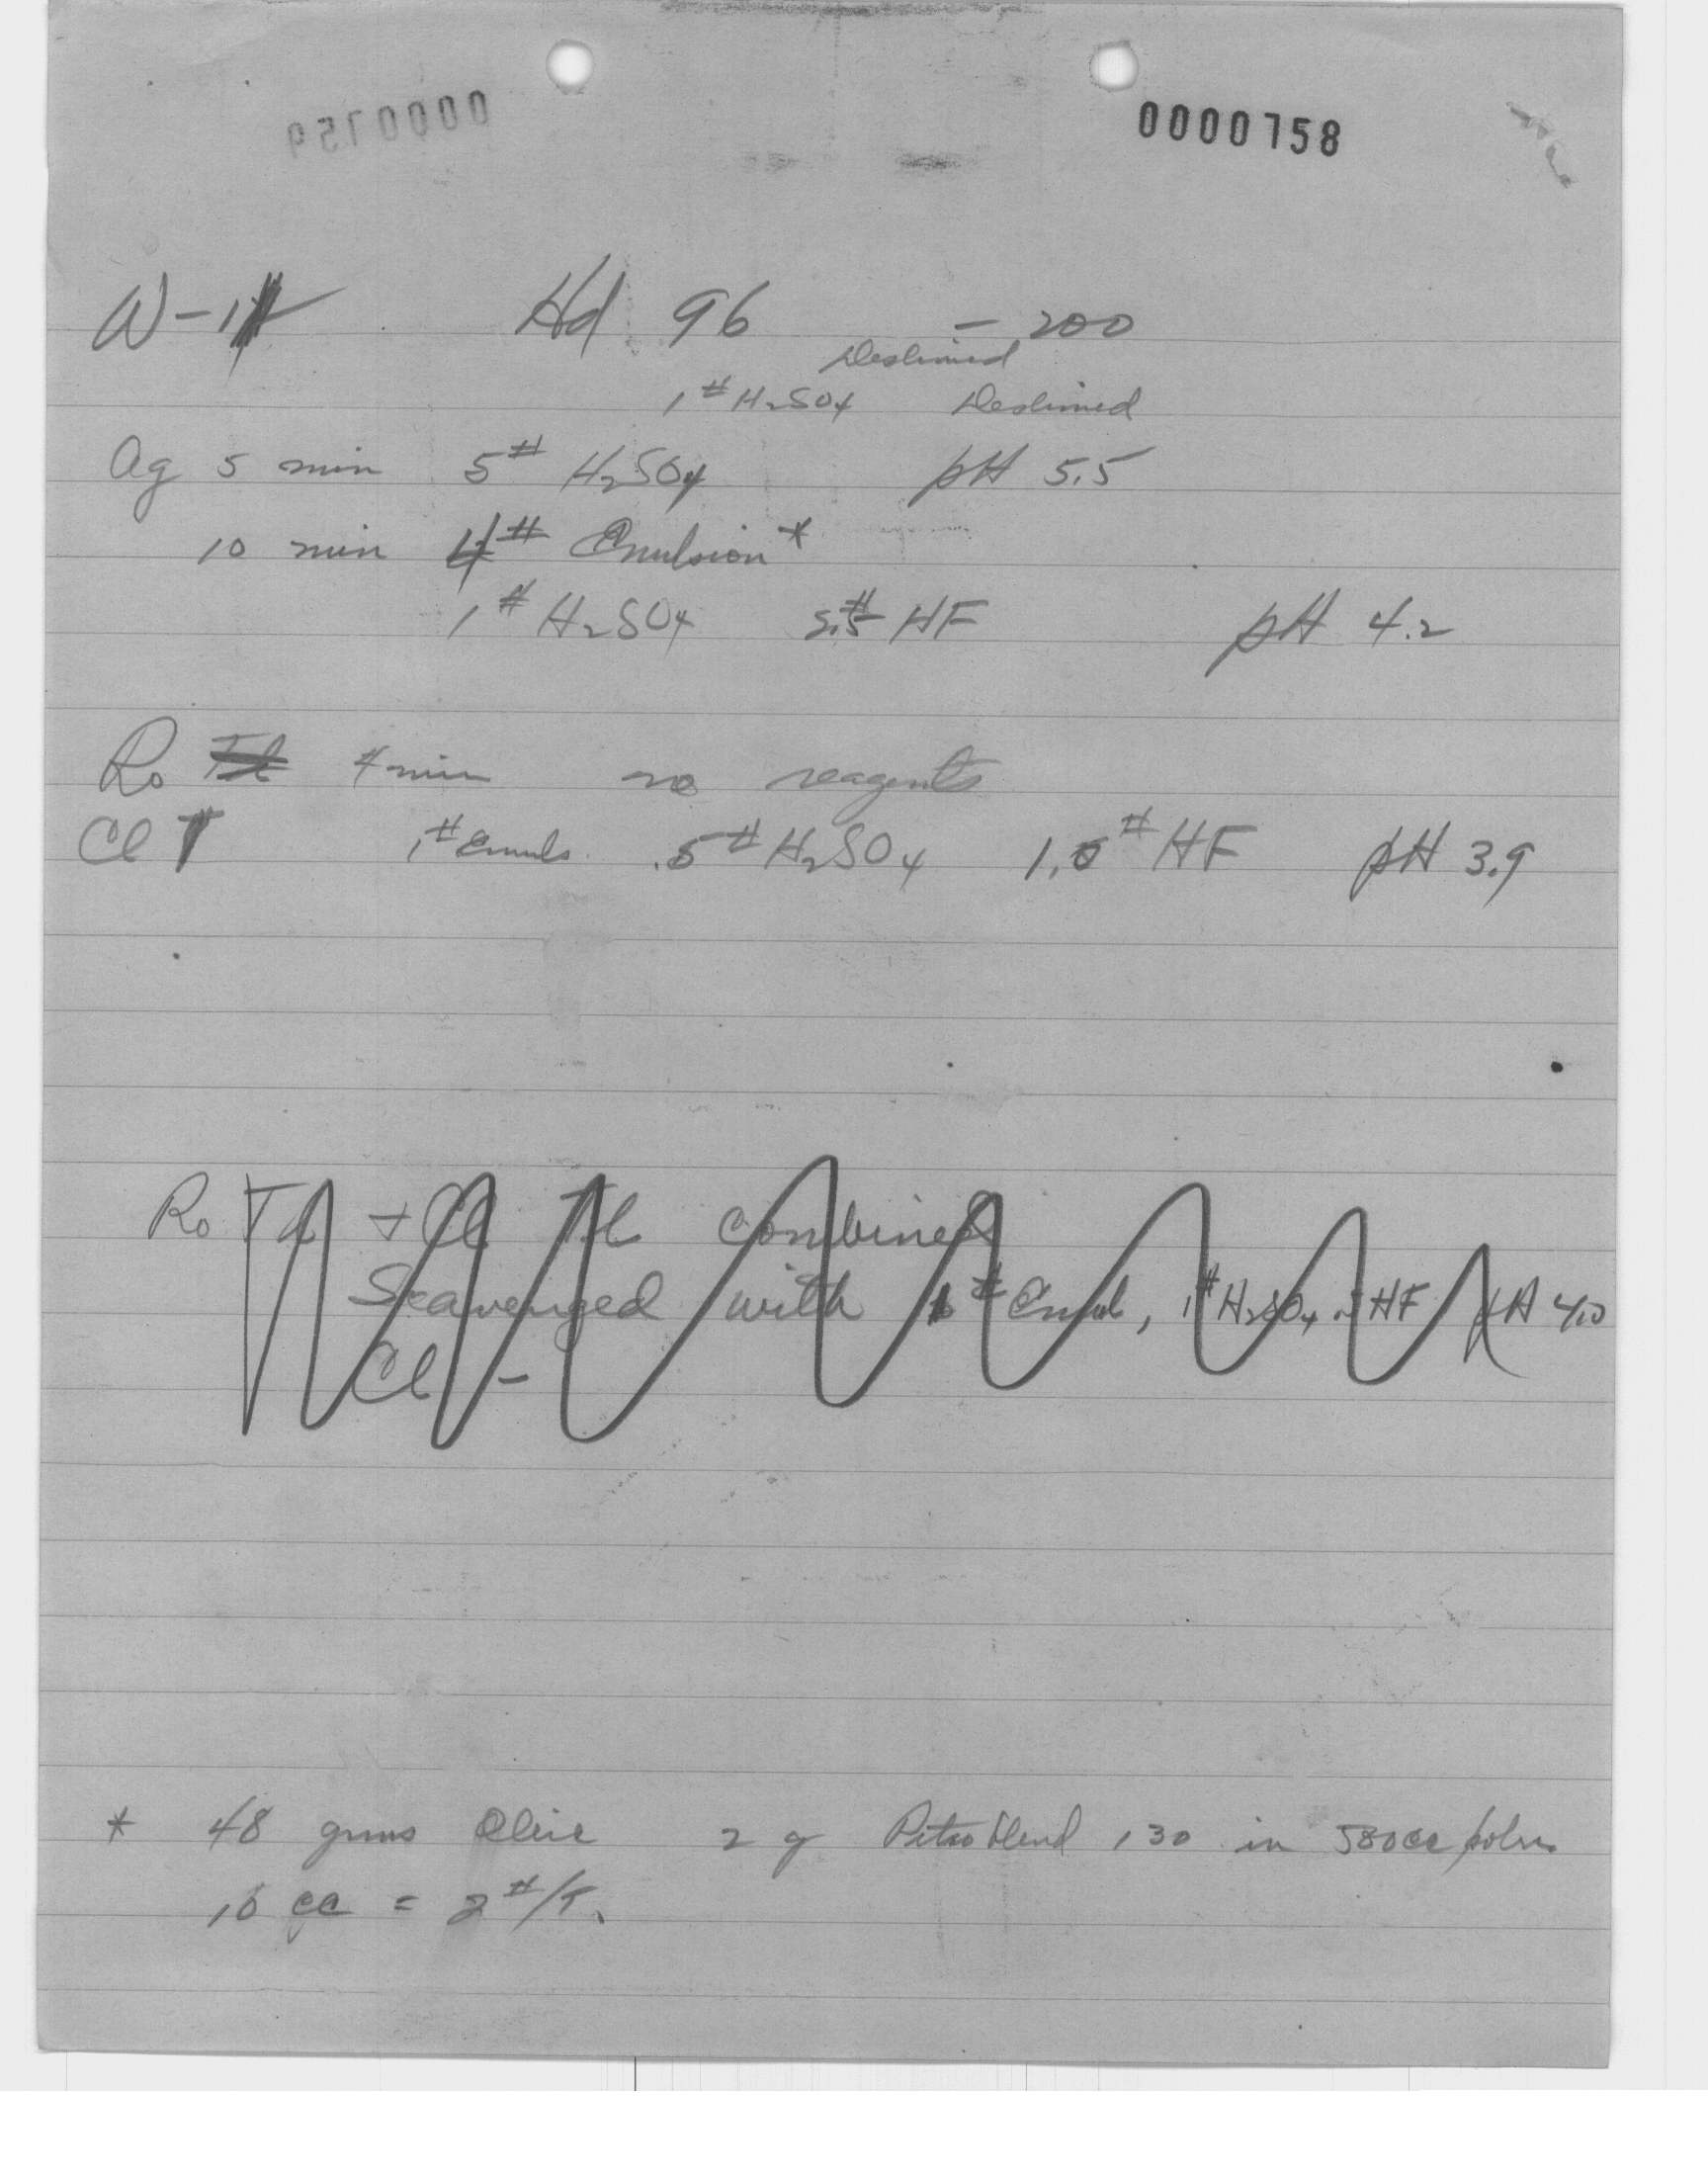 0000759
0000758
W-1
Hd 96 - 200
Deslimed
1# H2SO4 Deslimed
Ag 5 min 5# H2SO4 pH 5.5
10 min 4# Emulsion*
1# H2SO4 HF pH 4.2
Ro Tl 4 min no reagents
Cl 1# Emuls. .5# H2SO4 1.0# HF pH 3.9
Ro Tl + Cl Tl combined
Scavenged with # Emul, 1# H2SO4 .5 HF pH 4.0
Cl -
* 48 gms Oleic 2 g Petroblend 130 in 580cc soln
10 cc = 2#/T.